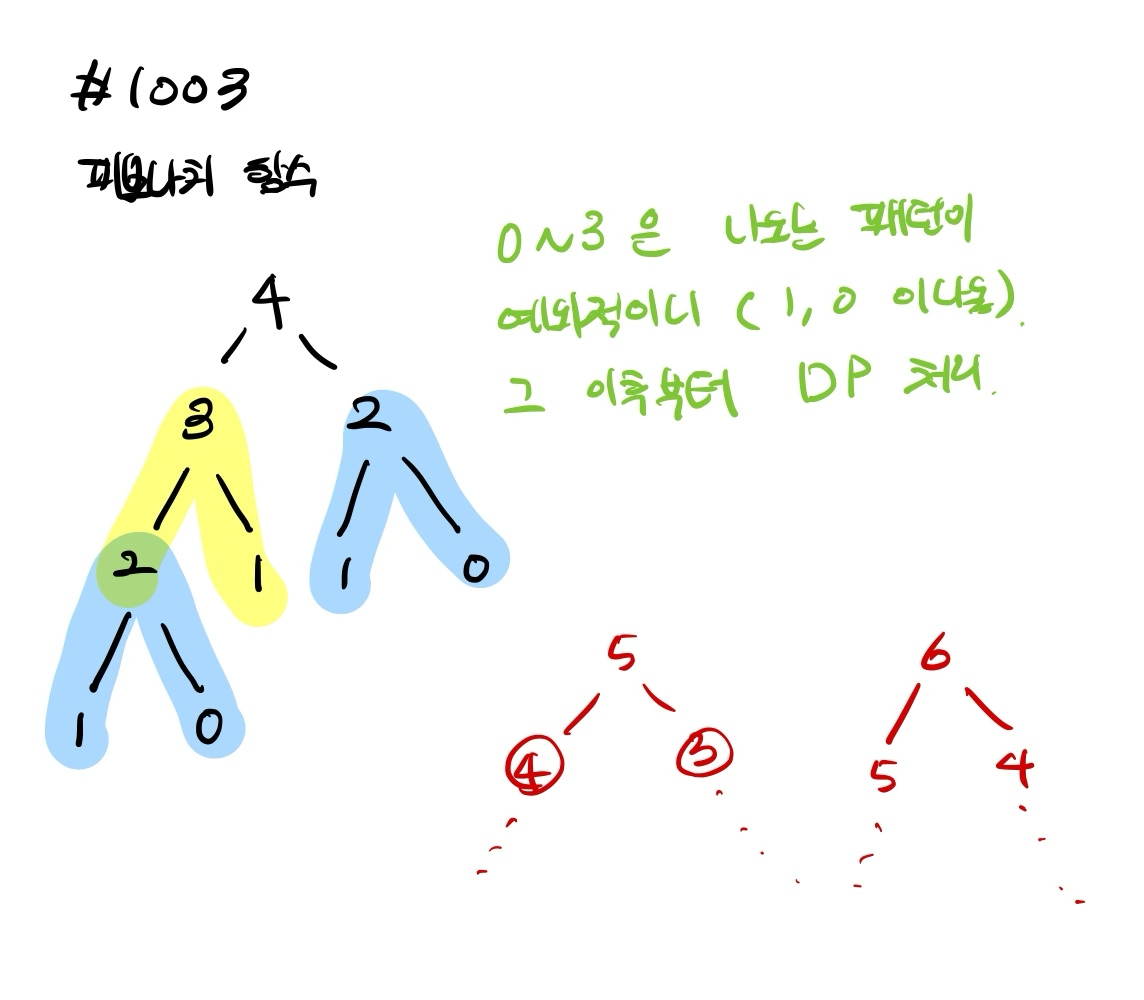 #1003
피보나치 함수
0~3은 나오는 패턴이
예외적이니 (1, 0 이나옴).
그 이후부터 DP 처리.
4
3 2
2 1 1 0
1 0
5 6
4 3 5 4